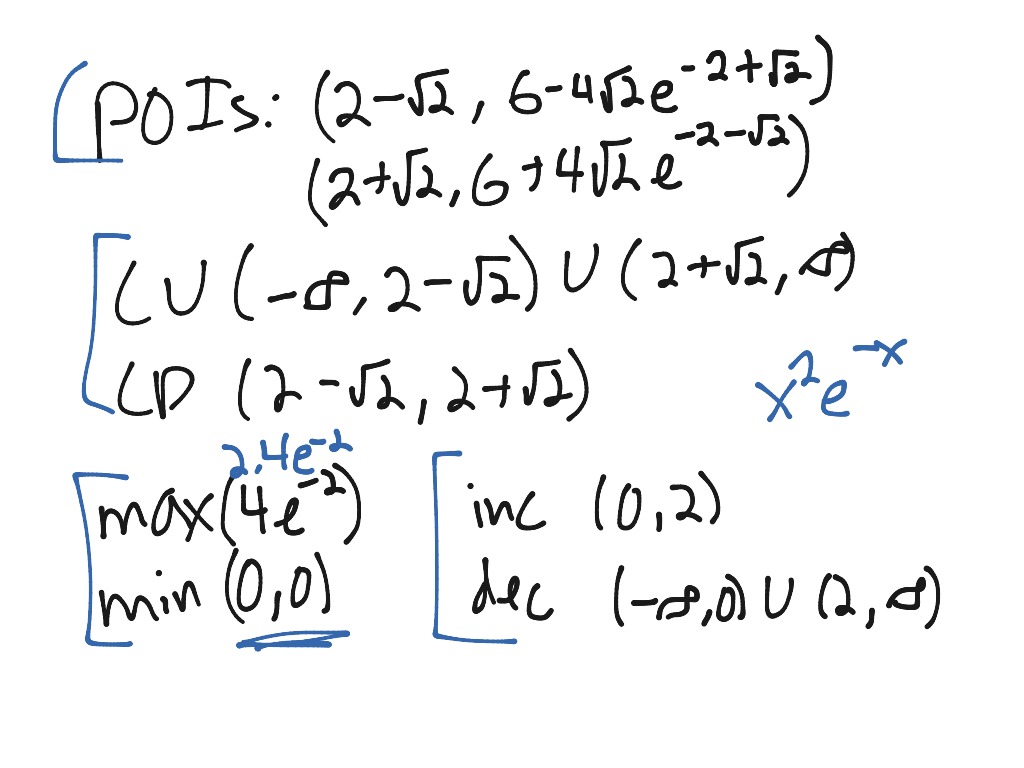 POIs: (2-√2, 6-4√2e^{-2+√2})
(2+√2, 6+4√2e^{-2-√2})
CU (-∞, 2-√2) ∪ (2+√2, ∞)
CD (2-√2, 2+√2)
x²e^{-x}
2,4e^{-2}
max(4e^{-2})
min (0,0)
inc (0,2)
dec (-∞,0) ∪ (2,∞)